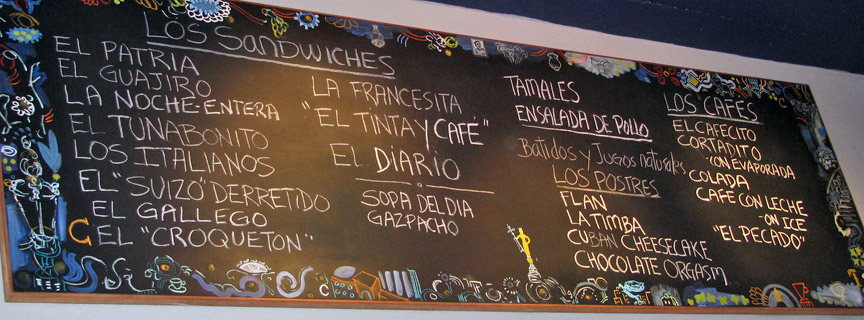 LOS SANDWICHES
EL PATRIA
EL GUAJIRO
LA NOCHE ENTERA
EL TUNABONITO
LOS ITALIANOS
EL "SUIZO" DERRETIDO
EL GALLEGO
EL "CROQUETON"
LA FRANCESITA
"EL TINTA Y CAFÉ"
EL DIARIO
SOPA DEL DIA
GAZPACHO
TAMALES
ENSALADA DE POLLO
Batidos y Jugos naturales
LOS POSTRES
FLAN
LA TIMBA
CUBAN CHEESECAKE
CHOCOLATE ORGASM
LOS CAFÉS
EL CAFECITO
CORTADITO
-CON EVAPORADA
COLADA
CAFE CON LECHE
-ON ICE
"EL PECADO"